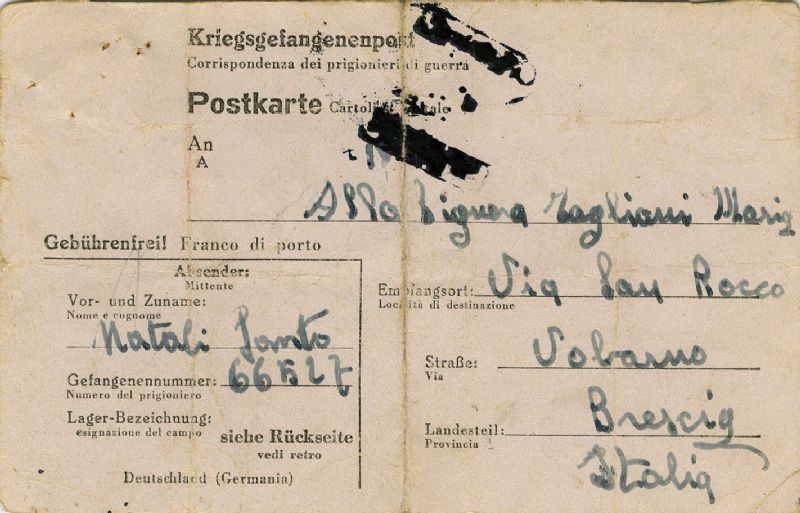 Kriegsgefangenenpost
Corrispondenza dei prigionieri di guerra
Postkarte Cartolina postale
An
A
Alla Signora Tagliani Maria
Gebührenfrei! Franco di porto
Absender:
Mittente
Vor- und Zuname:
Nome e cognome
Natali Santo
Gefangenennummer:
Numero del prigioniero
Lager-Bezeichnung:
esignazione del campo
siehe Rückseite
vedi retro
Deutschland (Germania)
Empfangsort: Via San Rocco
Località di destinazione
Straße: Vobarno
Via
Landesteil: Brescia
Provincia
Italia